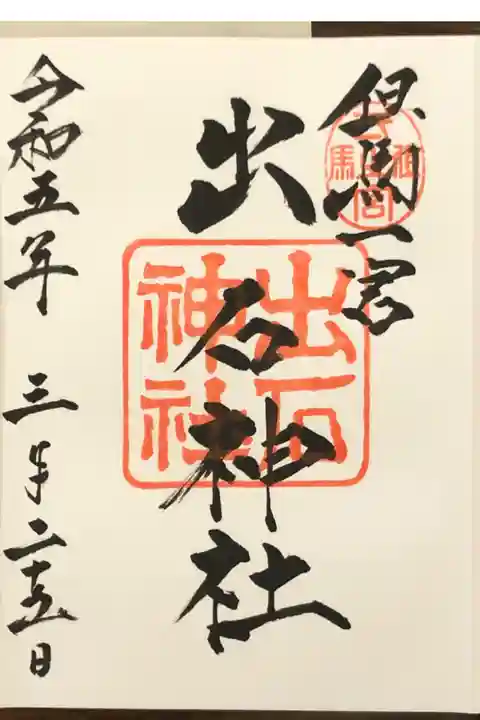 但馬一宮
出石神社
出石
神社
令和五年 三月二十五日